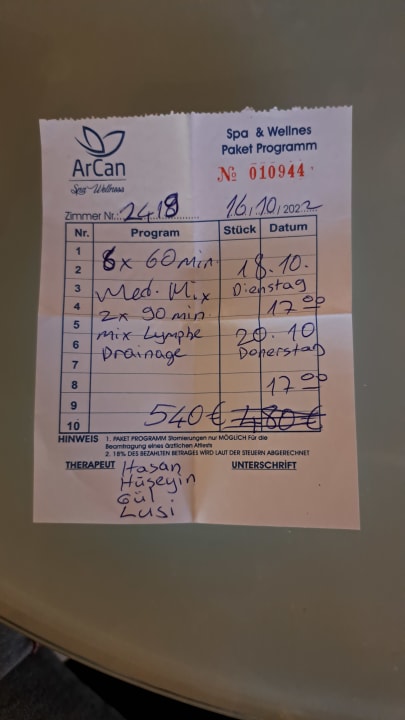 ArCan
Spa & Wellness
Spa & Wellnes
Paket Programm
№ 010944
Zimmer Nr.: 2418
16.10.2022
Nr. Program Stück Datum
1
2 6x 60 min. 18.10.
3 Med. Mix Dienstag
4 2x 90 min 17 00
5 mix Lymphe 20. 10
6 Drainage Donerstag
7
8 17 00
9
10 540 € 480 €
HINWEIS 1. PAKET PROGRAMM Stornierungen nur MÖGLICH Für die
Beamtragung eines ärztlichen Attests
2. 18% DES BEZAHLTEN BETRAGES WIRD LAUT DER STEUERN ABGERECHNET
THERAPEUT UNTERSCHRIFT
Hasan
Hüseyin
Gül
Lusi